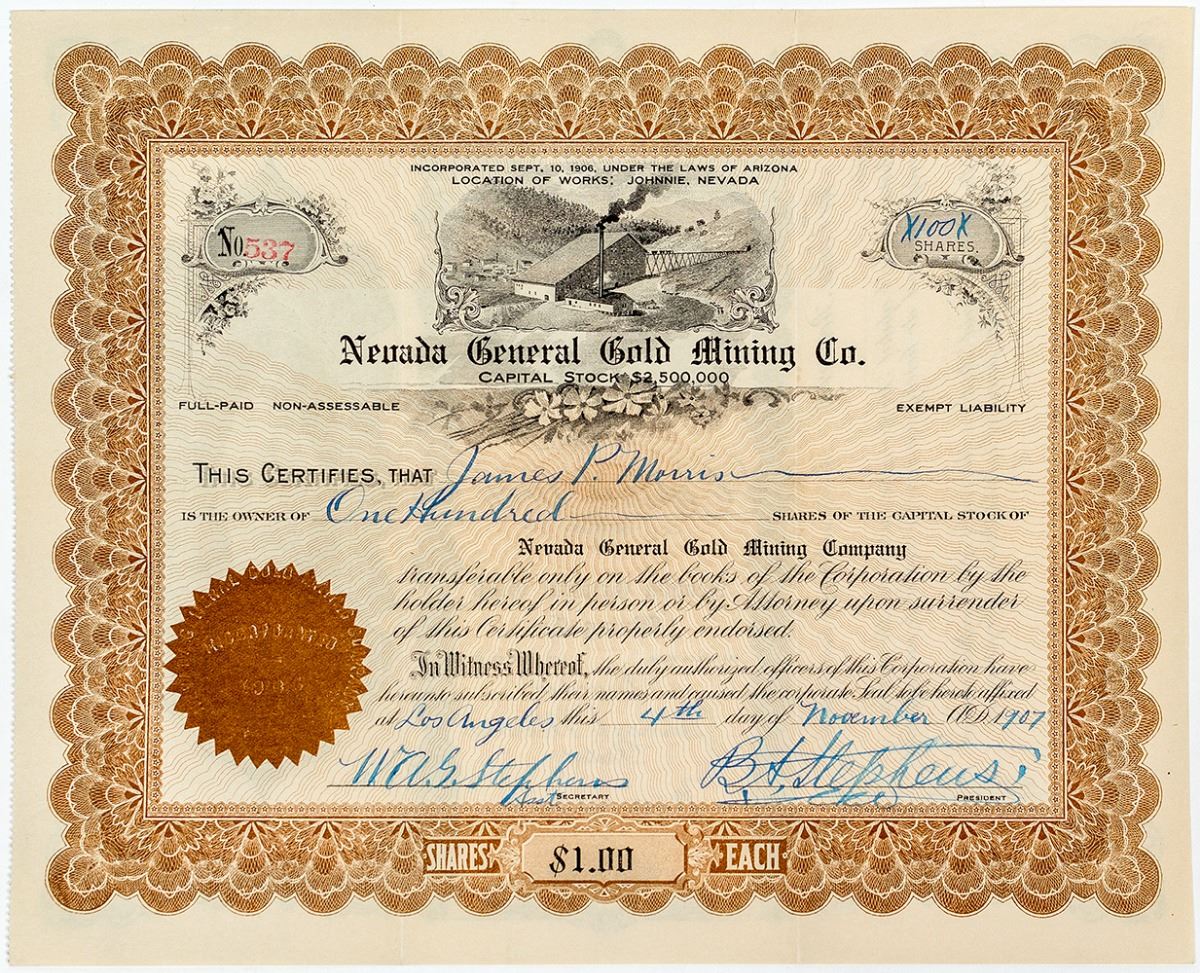 INCORPORATED SEPT. 10, 1906, UNDER THE LAWS OF ARIZONA
LOCATION OF WORKS: JOHNNIE, NEVADA
No. 537
X100X
SHARES
Nevada General Gold Mining Co.
CAPITAL STOCK $2,500,000
FULL-PAID NON-ASSESSABLE
EXEMPT LIABILITY
THIS CERTIFIES, THAT James P. Morris
IS THE OWNER OF One Hundred SHARES OF THE CAPITAL STOCK OF
Nevada General Gold Mining Company
transferable only on the books of the Corporation by the
holder hereof in person or by Attorney upon surrender
of this Certificate properly endorsed.
In Witness Whereof, the duly authorized officers of this Corporation have
hereunto subscribed their names and caused the corporate Seal to be hereto affixed
at Los Angeles this 4th day of November A.D. 1907
W A G Stephens
Asst SECRETARY
Stephens
PRESIDENT
SHARES $1.00 EACH